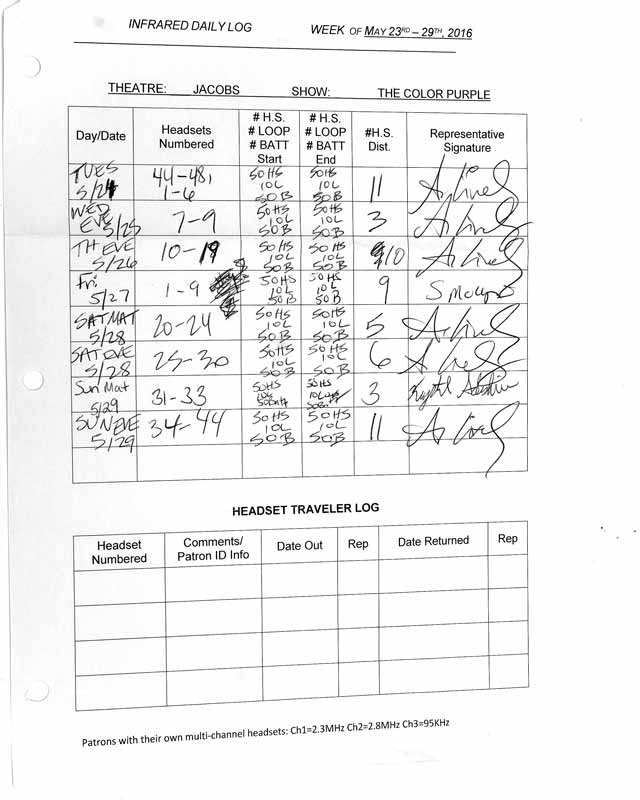 INFRARED DAILY LOG WEEK OF MAY 23RD – 29TH, 2016
THEATRE: JACOBS SHOW: THE COLOR PURPLE
Day/Date Headsets Numbered # H.S. # LOOP # BATT Start # H.S. # LOOP # BATT End #H.S. Dist. Representative Signature
TUES 5/24 44-48, 1-6 50HS 10L 50B 50HS 10L 50B 11
WED EVE 5/25 7-9 50HS 10L 50B 50HS 10L 50B 3
TH EVE 5/26 10-19 50HS 10L 50B 50HS 10L 50B 10
Fri 5/27 1-9 50HS 10L 50B 50HS 10L 50B 9
SAT MAT 5/28 20-24 50HS 10L 50B 50HS 10L 50B 5
SAT EVE 5/28 25-30 50HS 10L 50B 50HS 10L 50B 6
Sun Mat 5/29 31-33 50HS 50HS 3
SUN EVE 5/29 34-44 50HS 10L 50B 50HS 10L 50B 11
HEADSET TRAVELER LOG
Headset Numbered Comments/ Patron ID Info Date Out Rep Date Returned Rep
Patrons with their own multi-channel headsets: Ch1=2.3MHz Ch2=2.8MHz Ch3=95KHz